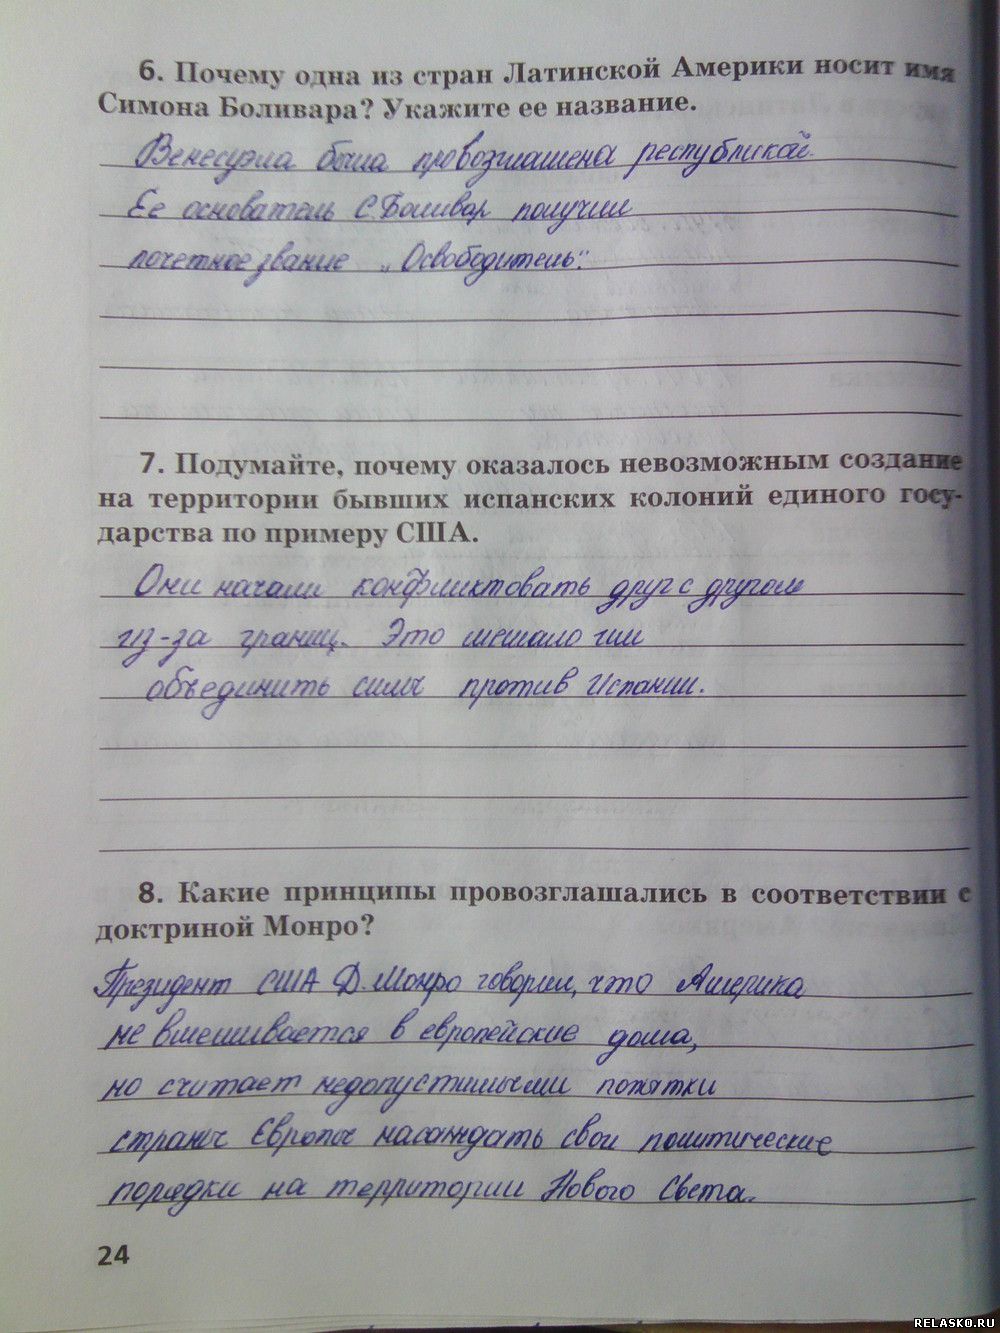 6. Почему одна из стран Латинской Америки носит имя
Симона Боливара? Укажите ее название.
Венесуэла была провозглашена республикой.
Ее основатель С. Боливар получил
почетное звание „Освободитель".
7. Подумайте, почему оказалось невозможным создание
на территории бывших испанских колоний единого госу-
дарства по примеру США.
Они начали конфликтовать друг с другом
из-за границ. Это мешало им
объединить силы против Испании.
8. Какие принципы провозглашались в соответствии с
доктриной Монро?
Президент США Д. Монро говорил, что Америка
не вмешивается в европейские дома,
но считает недопустимыми попытки
страны Европы насаждать свои политические
порядки на территории Нового Света.
24
RELASKO.RU